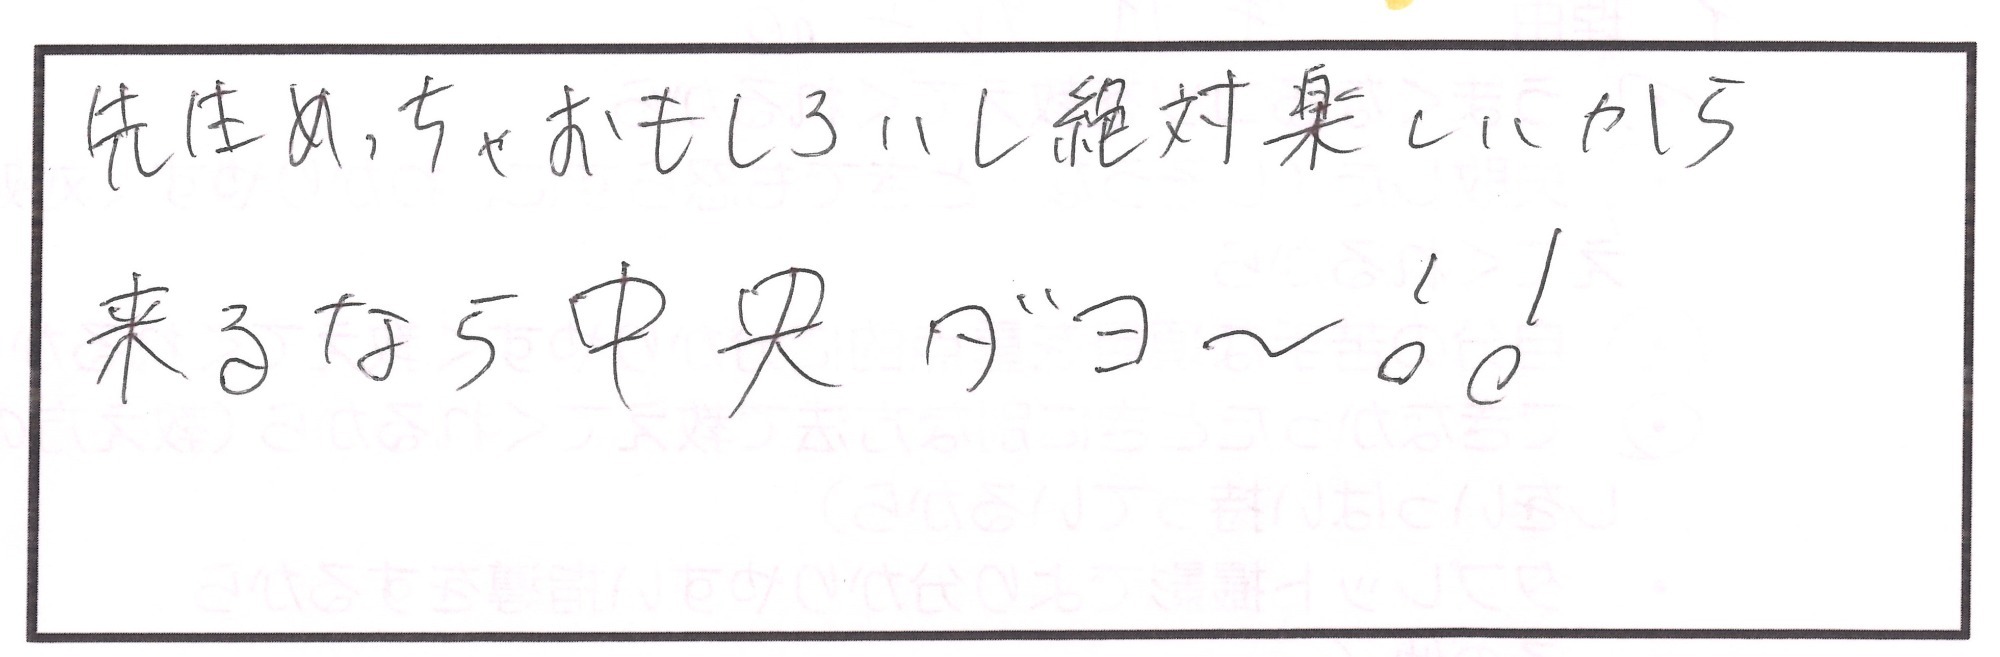 先生めっちゃおもしろいし絶対楽しいから
来るなら中央ダヨ〜!!